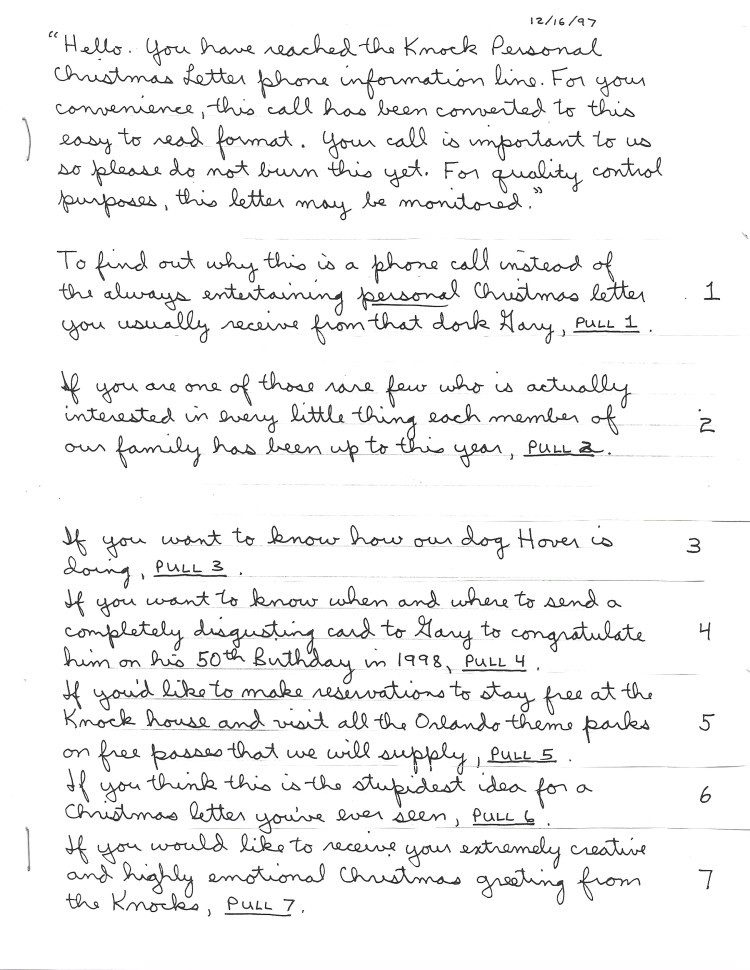 12/16/97
"Hello. You have reached the Knock Personal
Christmas Letter phone information line. For your
convenience, this call has been converted to this
easy to read format. Your call is important to us
so please do not burn this yet. For quality control
purposes, this letter may be monitored."
To find out why this is a phone call instead of
the always entertaining personal Christmas letter 1
you usually receive from that dork Gary, PULL 1.
If you are one of those rare few who is actually
interested in every little thing each member of 2
our family has been up to this year, PULL 2.
If you want to know how our dog Hover is 3
doing, PULL 3.
If you want to know when and where to send a
completely disgusting card to Gary to congratulate 4
him on his 50th Birthday in 1998, PULL 4.
If you'd like to make reservations to stay free at the
Knock house and visit all the Orlando theme parks 5
on free passes that we will supply, PULL 5.
If you think this is the stupidest idea for a 6
Christmas letter you've ever seen, PULL 6.
If you would like to receive your extremely creative
and highly emotional Christmas greeting from 7
the Knocks, PULL 7.